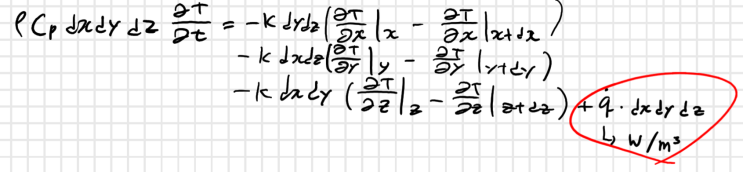 ρ Cp dx dy dz ∂T/∂t = -k dy dz (∂T/∂x |x - ∂T/∂x |x+dx)
-k dx dz (∂T/∂y |y - ∂T/∂y |y+dy)
-k dx dy (∂T/∂z |z - ∂T/∂z |z+dz) + q̇ · dx dy dz
↳ W/m³